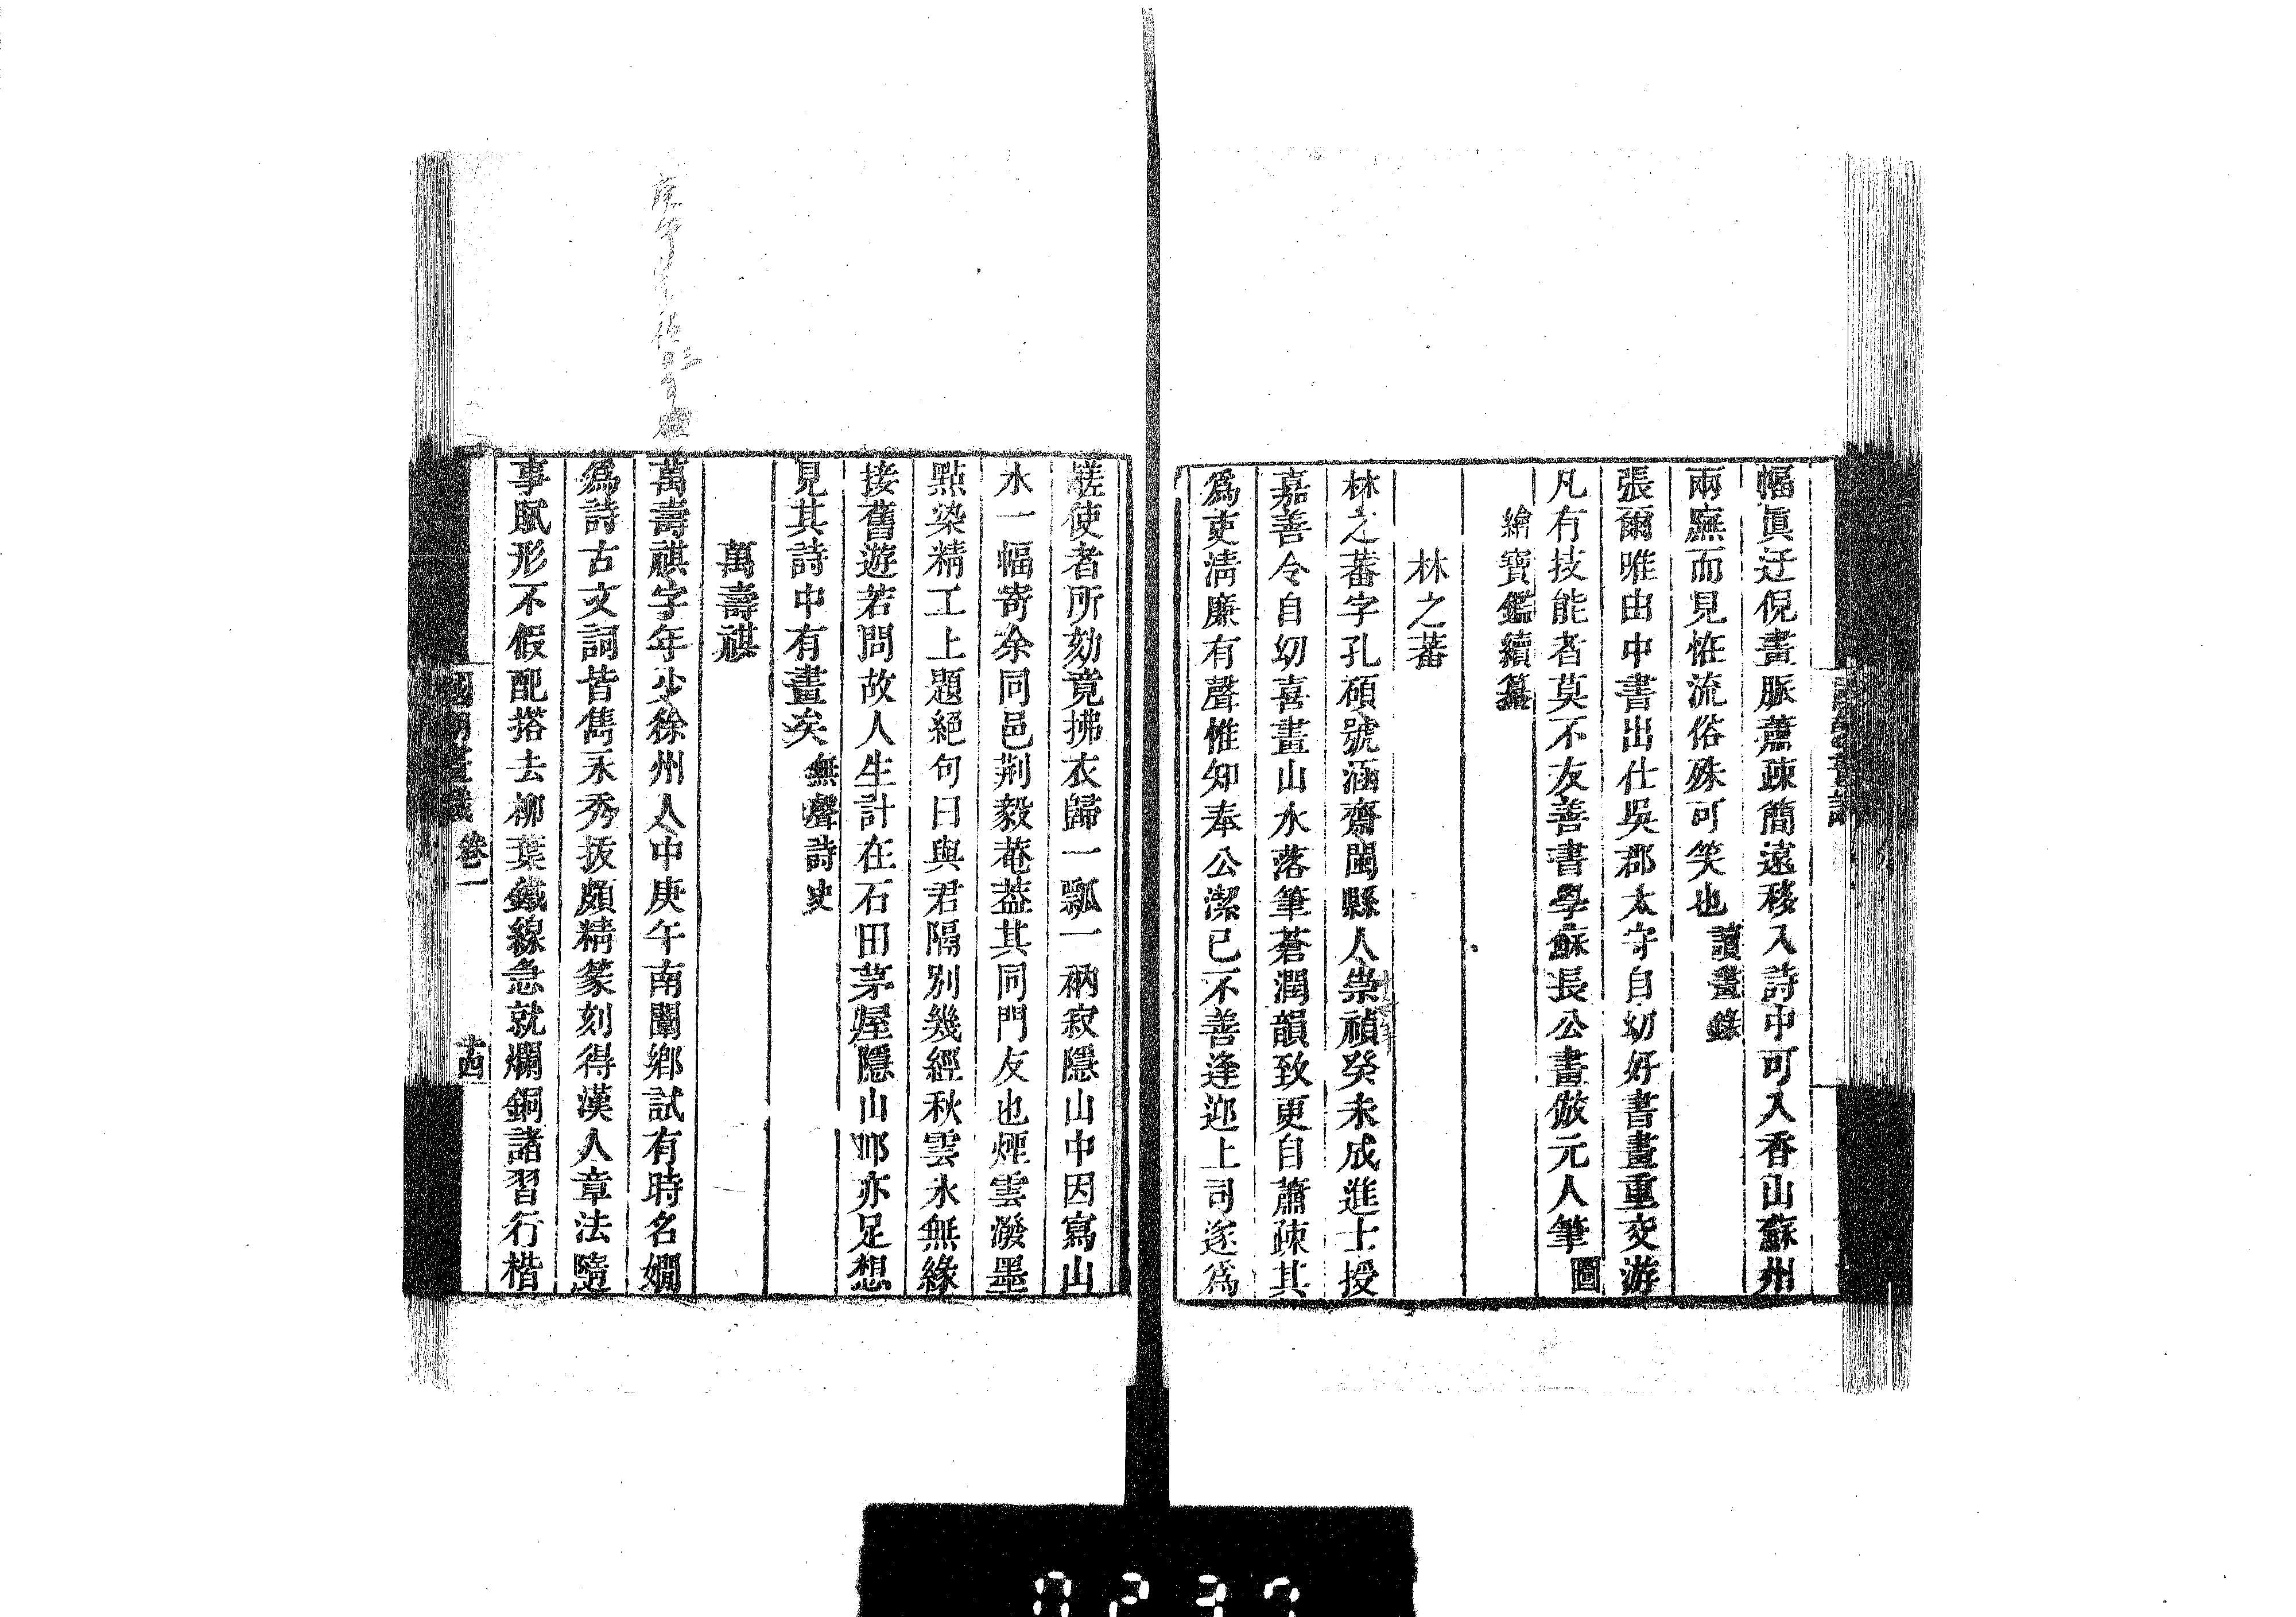 幅眞迂倪畫脈蕭疎簡遠移入詩中可入香山蘇州
兩廡而見恠流俗殊可笑也讀畫錄
張爾唯由中書出仕吳郡太守自幼好書畫重交游
凡有技能者莫不友善書學蘇長公畫倣元人筆圖
繪寶鑑續纂
林之蕃
林之蕃字孔碩號涵齋閩縣人崇禎癸未成進士授
嘉善令自幼喜畫山水落筆蒼潤韻致更自蕭疎其
爲吏淸廉有聲惟知奉公潔已不善逢迎上司遂爲
鹾使者所劾竟拂衣歸一瓢一衲寂隱山中因寫山
水一幅寄余同邑荆毅菴葢其同門友也煙雲潑墨
點染精工上題絕句曰與君隔別幾經秋雲水無緣
接舊遊若問故人生計在石田茅屋隱山邱亦足想
見其詩中有畫矣無聲詩史
萬壽祺
萬壽祺字年少徐州人中庚午南闈鄉試有時名嫺
爲詩古文詞皆雋永秀拔頗精篆刻得漢人章法隨
事賦形不假配搭去柳葉鐵線急就爛銅諸習行楷
國朝畫識
卷一
十四
0237